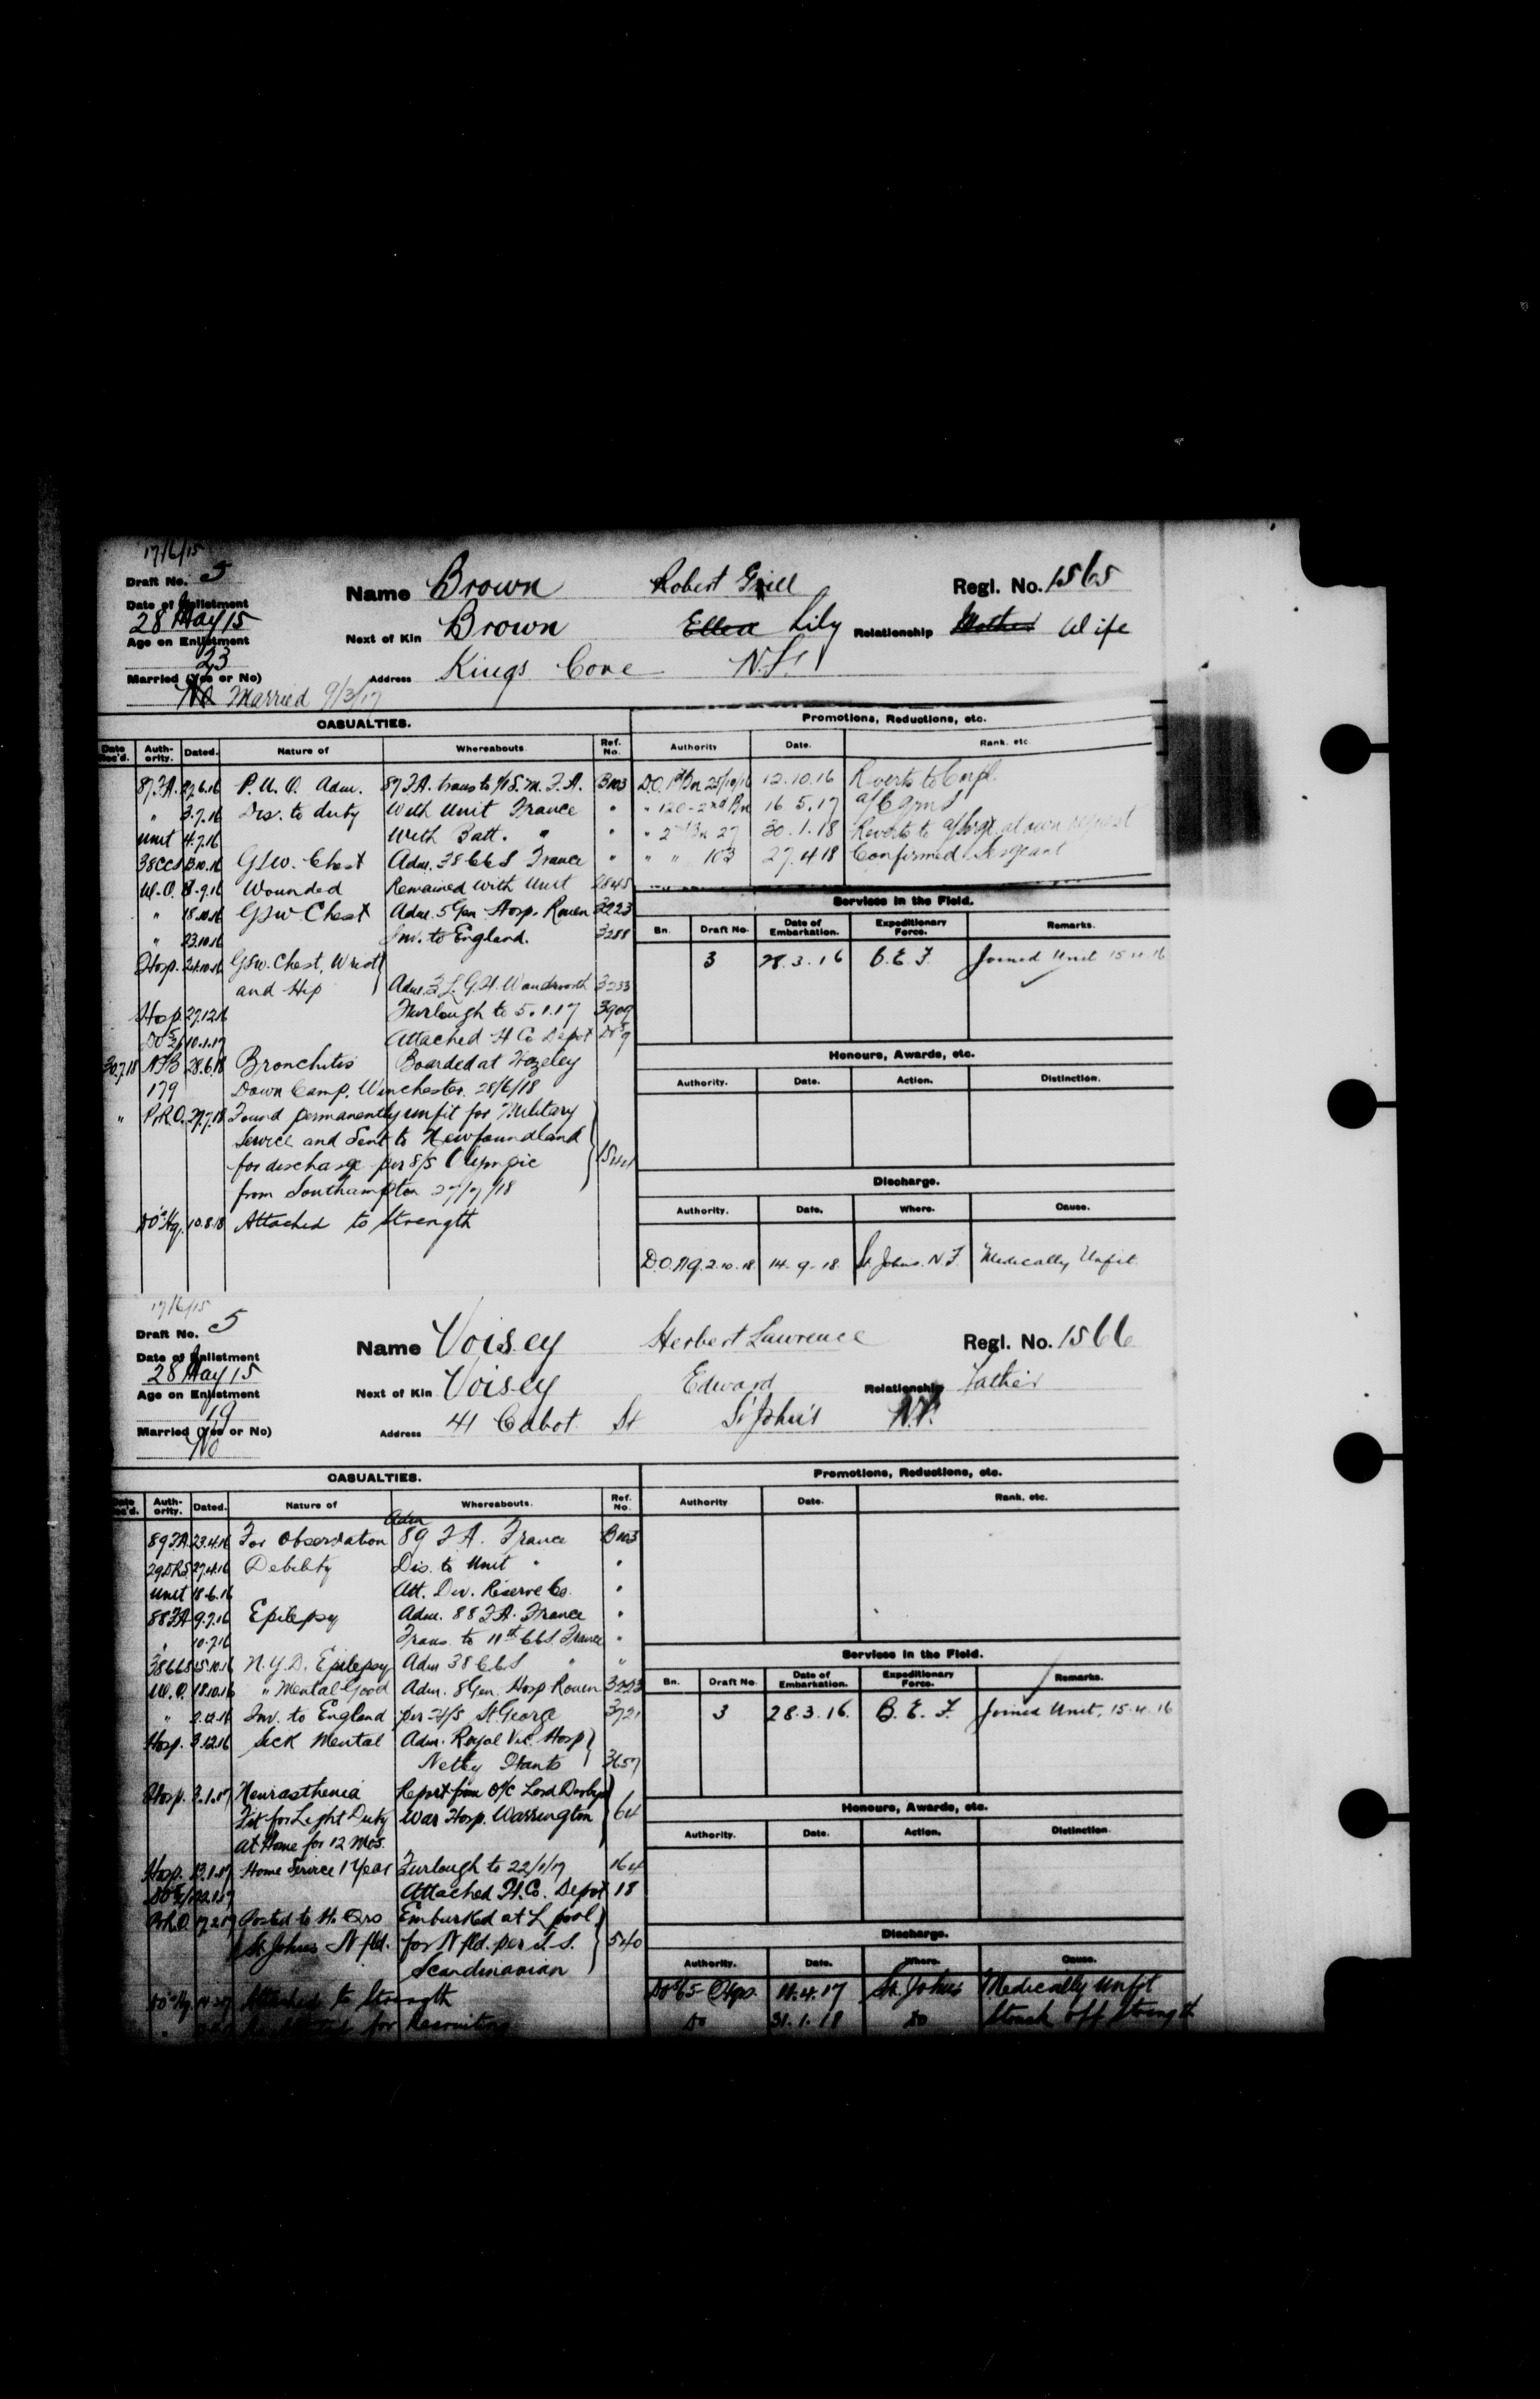 17/6/15
Draft No. 5
Name Brown Robert Grill Regl. No. 1565
Date of Enlistment
28 May 15
Next of Kin Brown Ellen Lily Relationship Mother Wife
Age on Enlistment
23
Address Kings Cove N.F.
Married (Yes or No)
No Married 9/3/17
CASUALTIES.
Date Rec'd. Auth-ority. Dated. Nature of Whereabouts Ref. No.
87 F.A. 27.6.16 P.U.O. Adm. 87 F.A. trans to 1/1 S.M. F.A. B103
" 3.7.16 Dis. to duty With Unit France "
Unit 4.7.16 With Batt. " "
38CCS 13.10.16 GSW. Chest Adm. 38 CCS France "
W.O. Wounded Remained with Unit 2845
" 18.10.16 GSW Chest Adm. 5 Gen. Hosp. Rouen 3223
" 23.10.16 Inv. to England. 3288
Hosp. 24.10.16 GSW. Chest, Wrist
and Hip Adm. 3 L.G.H. Wandsworth 3233
Hosp. 27.12.16 Furlough to 5.1.17 3909
10.1.17 Attached H Co Depot
30.7.18 NFB 28.6.18 Bronchitis Boarded at Hazeley
179 Down Camp, Winchester. 28/6/18
" P.R.O. 27.7.18 Found permanently unfit for Military
Service and Sent to Newfoundland
for discharge per S/S Olympic
from Southampton 27/7/18
DO Hq. 10.8.18 Attached to Strength
Promotions, Reductions, etc.
Authority Date. Rank. etc.
D.O. 1st Bn 25/10/16 12.10.16 Reverts to Corpl.
" 120-2nd Bn 16.5.17 a/CQMS
" 2nd Bn 27 30.1.18 Reverts to a/Sergt at own request
" " 103 27.4.18 Confirmed Sergeant
Services in the Field.
Bn. Draft No. Date of Embarkation. Expeditionary Force. Remarks.
3 28.3.16 B.E.F. Joined Unit 15.4.16
Honours, Awards, etc.
Authority. Date. Action. Distinction.
Discharge.
Authority. Date. Where. Cause.
D.O. Hq. 2.10.18 14.9.18 St. Johns. N.F. Medically Unfit.
17/6/15
Draft No. 5
Name Voisey Herbert Lawrence Regl. No. 1566
Date of Enlistment
28 May 15
Next of Kin Voisey Edward Relationship Father
Age on Enlistment
19
Address 41 Cabot St St John's N.F.
Married (Yes or No)
No
CASUALTIES.
Date Rec'd. Auth-ority. Dated. Nature of Whereabouts. Ref. No.
89 F.A. 23.4.16 For Observation Adm 89 F.A. France B103
29DRS 27.4.16 Debility Dis. to Unit " "
Unit 18.6.16 Att. Div. Reserve Co. "
88 FA 9.7.16 Epilepsy Adm. 88 F.A. France "
" 10.7.16 Trans. to 11th CCS. France "
38CCS 15.10.16 N.Y.D. Epilepsy Adm 38 CCS " "
W.O. 18.10.16 " Mental Good Adm. 8 Gen. Hosp Rouen 3223
" 2.12.16 Inv. to England per H/S St George 3721
Hosp. 3.12.16 Sick Mental Adm. Royal Vic. Hosp
Netley Hants 3657
Hosp. 2.1.17 Neurasthenia Report from O/C Lord Derby
Fit for Light Duty War Hosp. Warrington 64
at Home for 12 Mos.
Hosp. 13.1.17 Home Service 1 Year Furlough to 22/1/17 164
Attached H. Co. Depot 18
P.R.O. 17.2.17 Posted to H. Qrs Embarked at L'pool
St. Johns Nfld. for Nfld. per S.S. 540
Scandinavian
DO Hq. Attached to Strength
for Recruiting
Promotions, Reductions, etc.
Authority Date. Rank. etc.
Services in the Field.
Bn. Draft No. Date of Embarkation. Expeditionary Force. Remarks.
3 28.3.16. B.E.F. Joined Unit, 15.4.16
Honours, Awards, etc.
Authority. Date. Action. Distinction.
Discharge.
Authority. Date. Where. Cause.
11.4.17 St. Johns Medically Unfit
Do 31.1.18 Do Struck off Strength